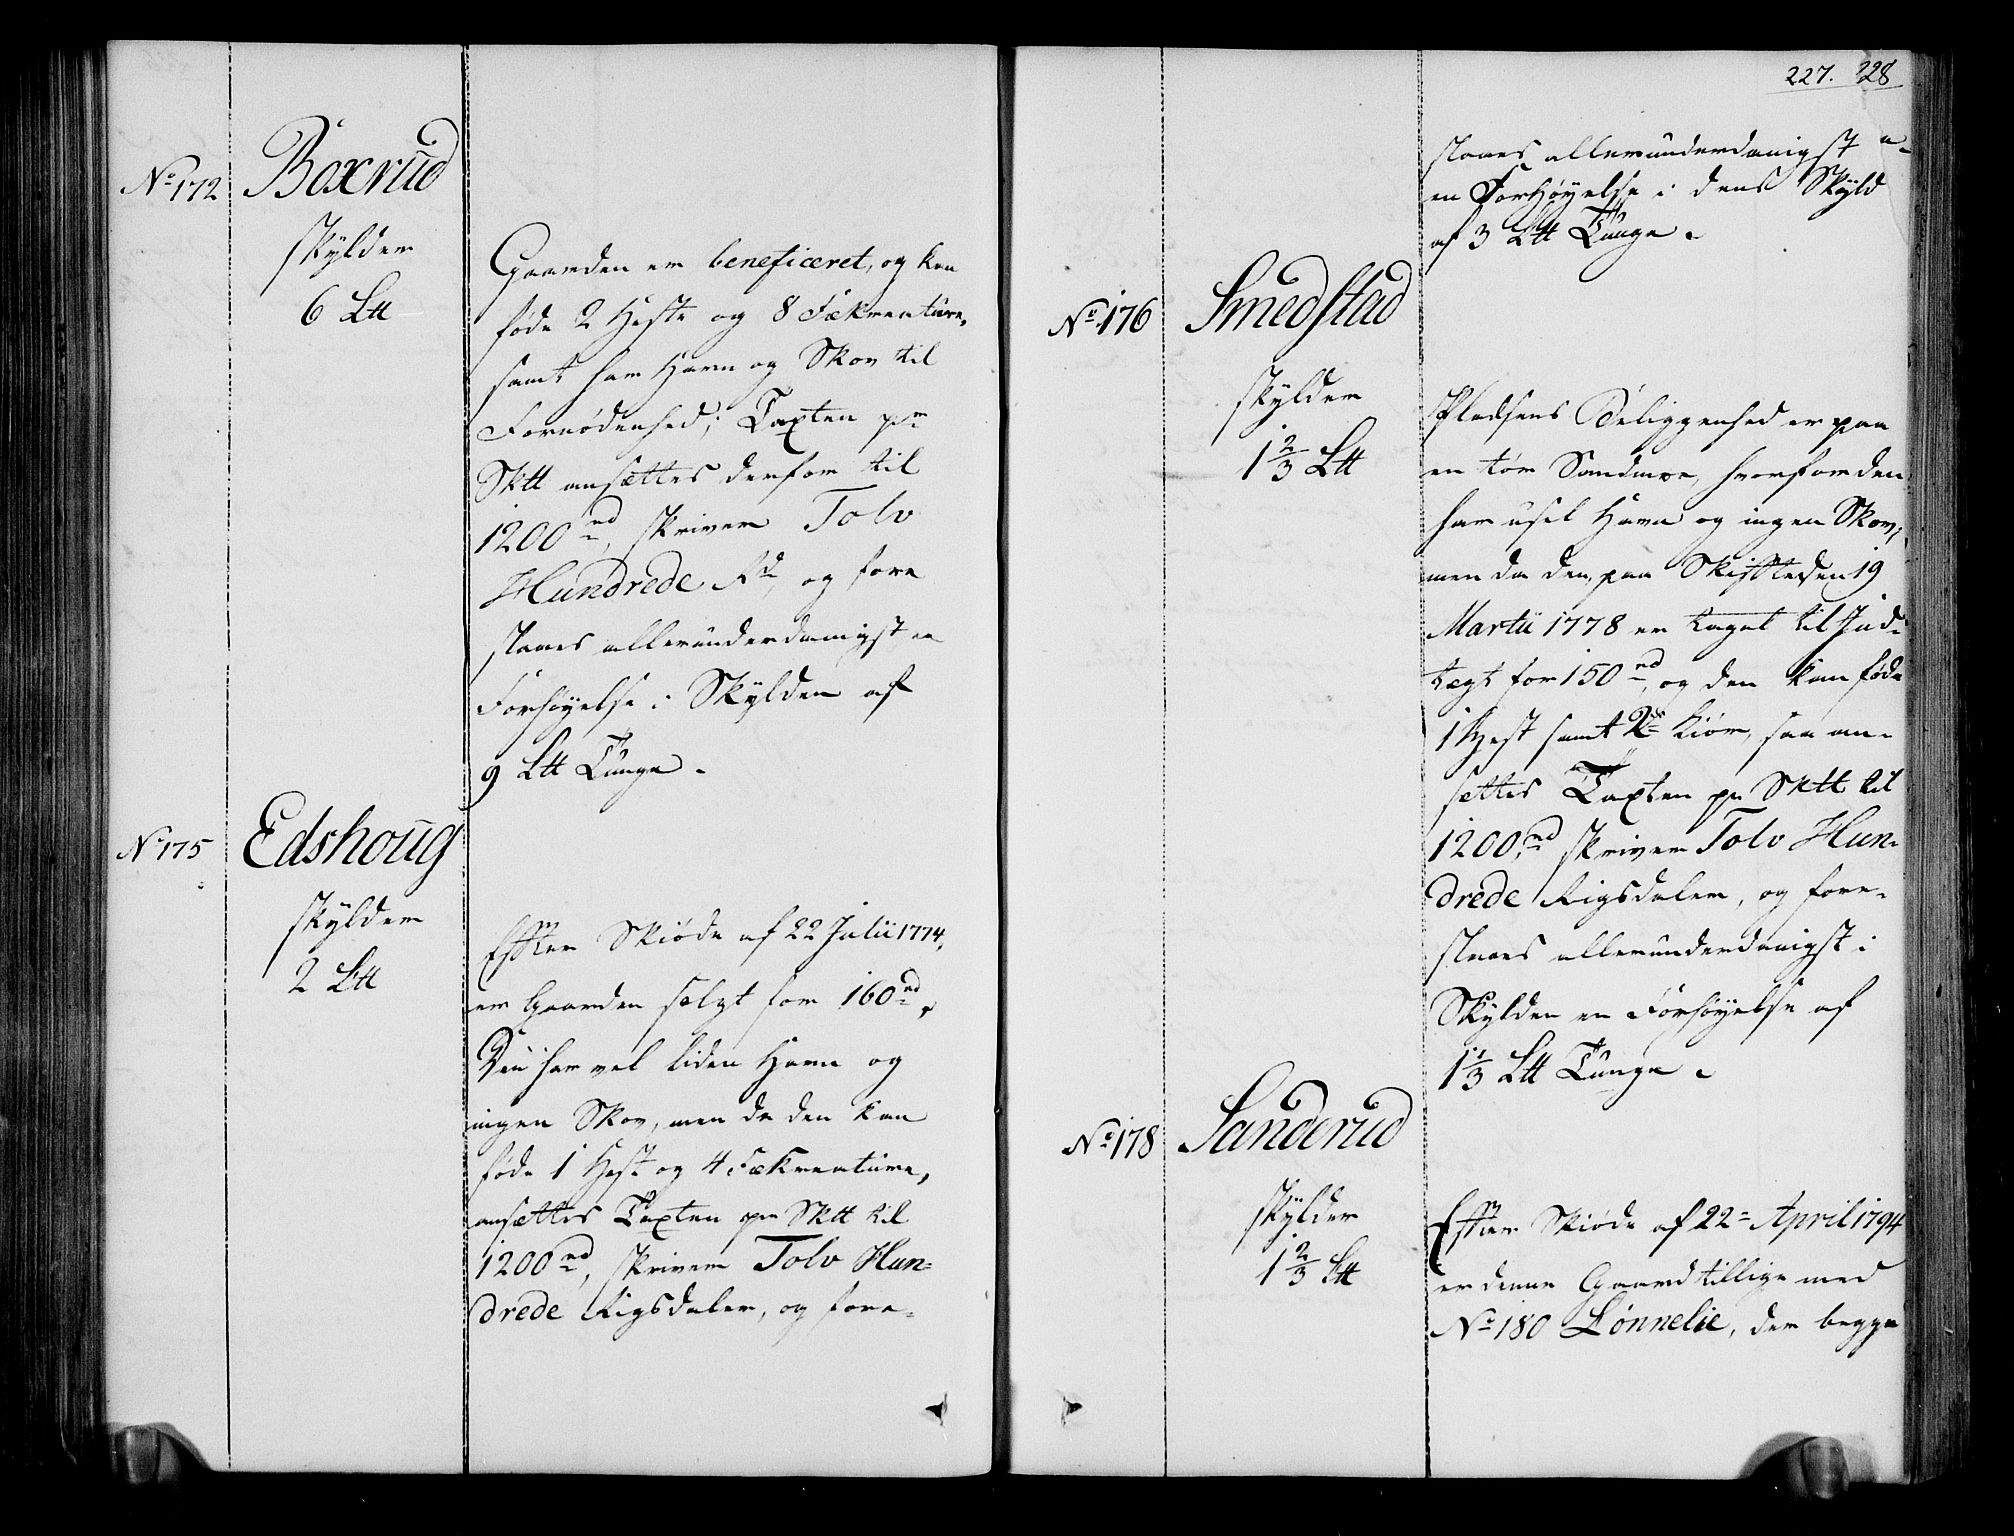 No 172
Boxrud
skylder
6 Ltt
Gaarden er beneficeret, og kan
føde 2 Heste og 8 Fækreature,
samt har Havn og Skov til
Fornødenhed; Taxten pr
Sktt ansættes derfor til
1200 rd, skriver Tolv
Hundrede Rd, og fore
slaaes allerunderdanigst en
Forhøyelse i Skylden af
9 Ltt Tunge.
No 175
Edshoug
skylder
2 Ltt
Efter Skiøde af 22 Julii 1774,
er Gaarden solgt for 160 rd,
Den har vel liden Havn og
ingen Skov, men da den kan
føde 1 Hest og 4 Fækreature,
ansættes Taxten pr Sktt til
1200 rd, skriver Tolv Hun=
drede Rigsdaler, og fore-
227. 228
slaaes allerunderdanigst
en Forhøyelse i dens Skyld
af 3 Ltt Tunge.
No 176
Smedstad
skylder
1 2/3 Ltt
Pladsens Beliggenhed er paa
en tør Sandmoe, hvorfor den
har usel Havn og ingen Skov,
men da den paa Skiftet den 19
Martii 1778 er taget til Ind-
tægt for 150 rd, og den kan føde
1 Hest samt 2de Kiør, saa an-
sættes Taxten pr Sktt til
1200 rd skriver Tolv Hun-
drede Rigsdaler, og fore-
slaaes allerunderdanigst i
Skylden en Forhøyelse af
1 1/3 Ltt Tunge.
No 178
Sanderud
skylder
1 2/3 Ltt
Efter Skiøde af 22= April 1794
er denne Gaard tillige med
No 180 Lønnelie, der begge